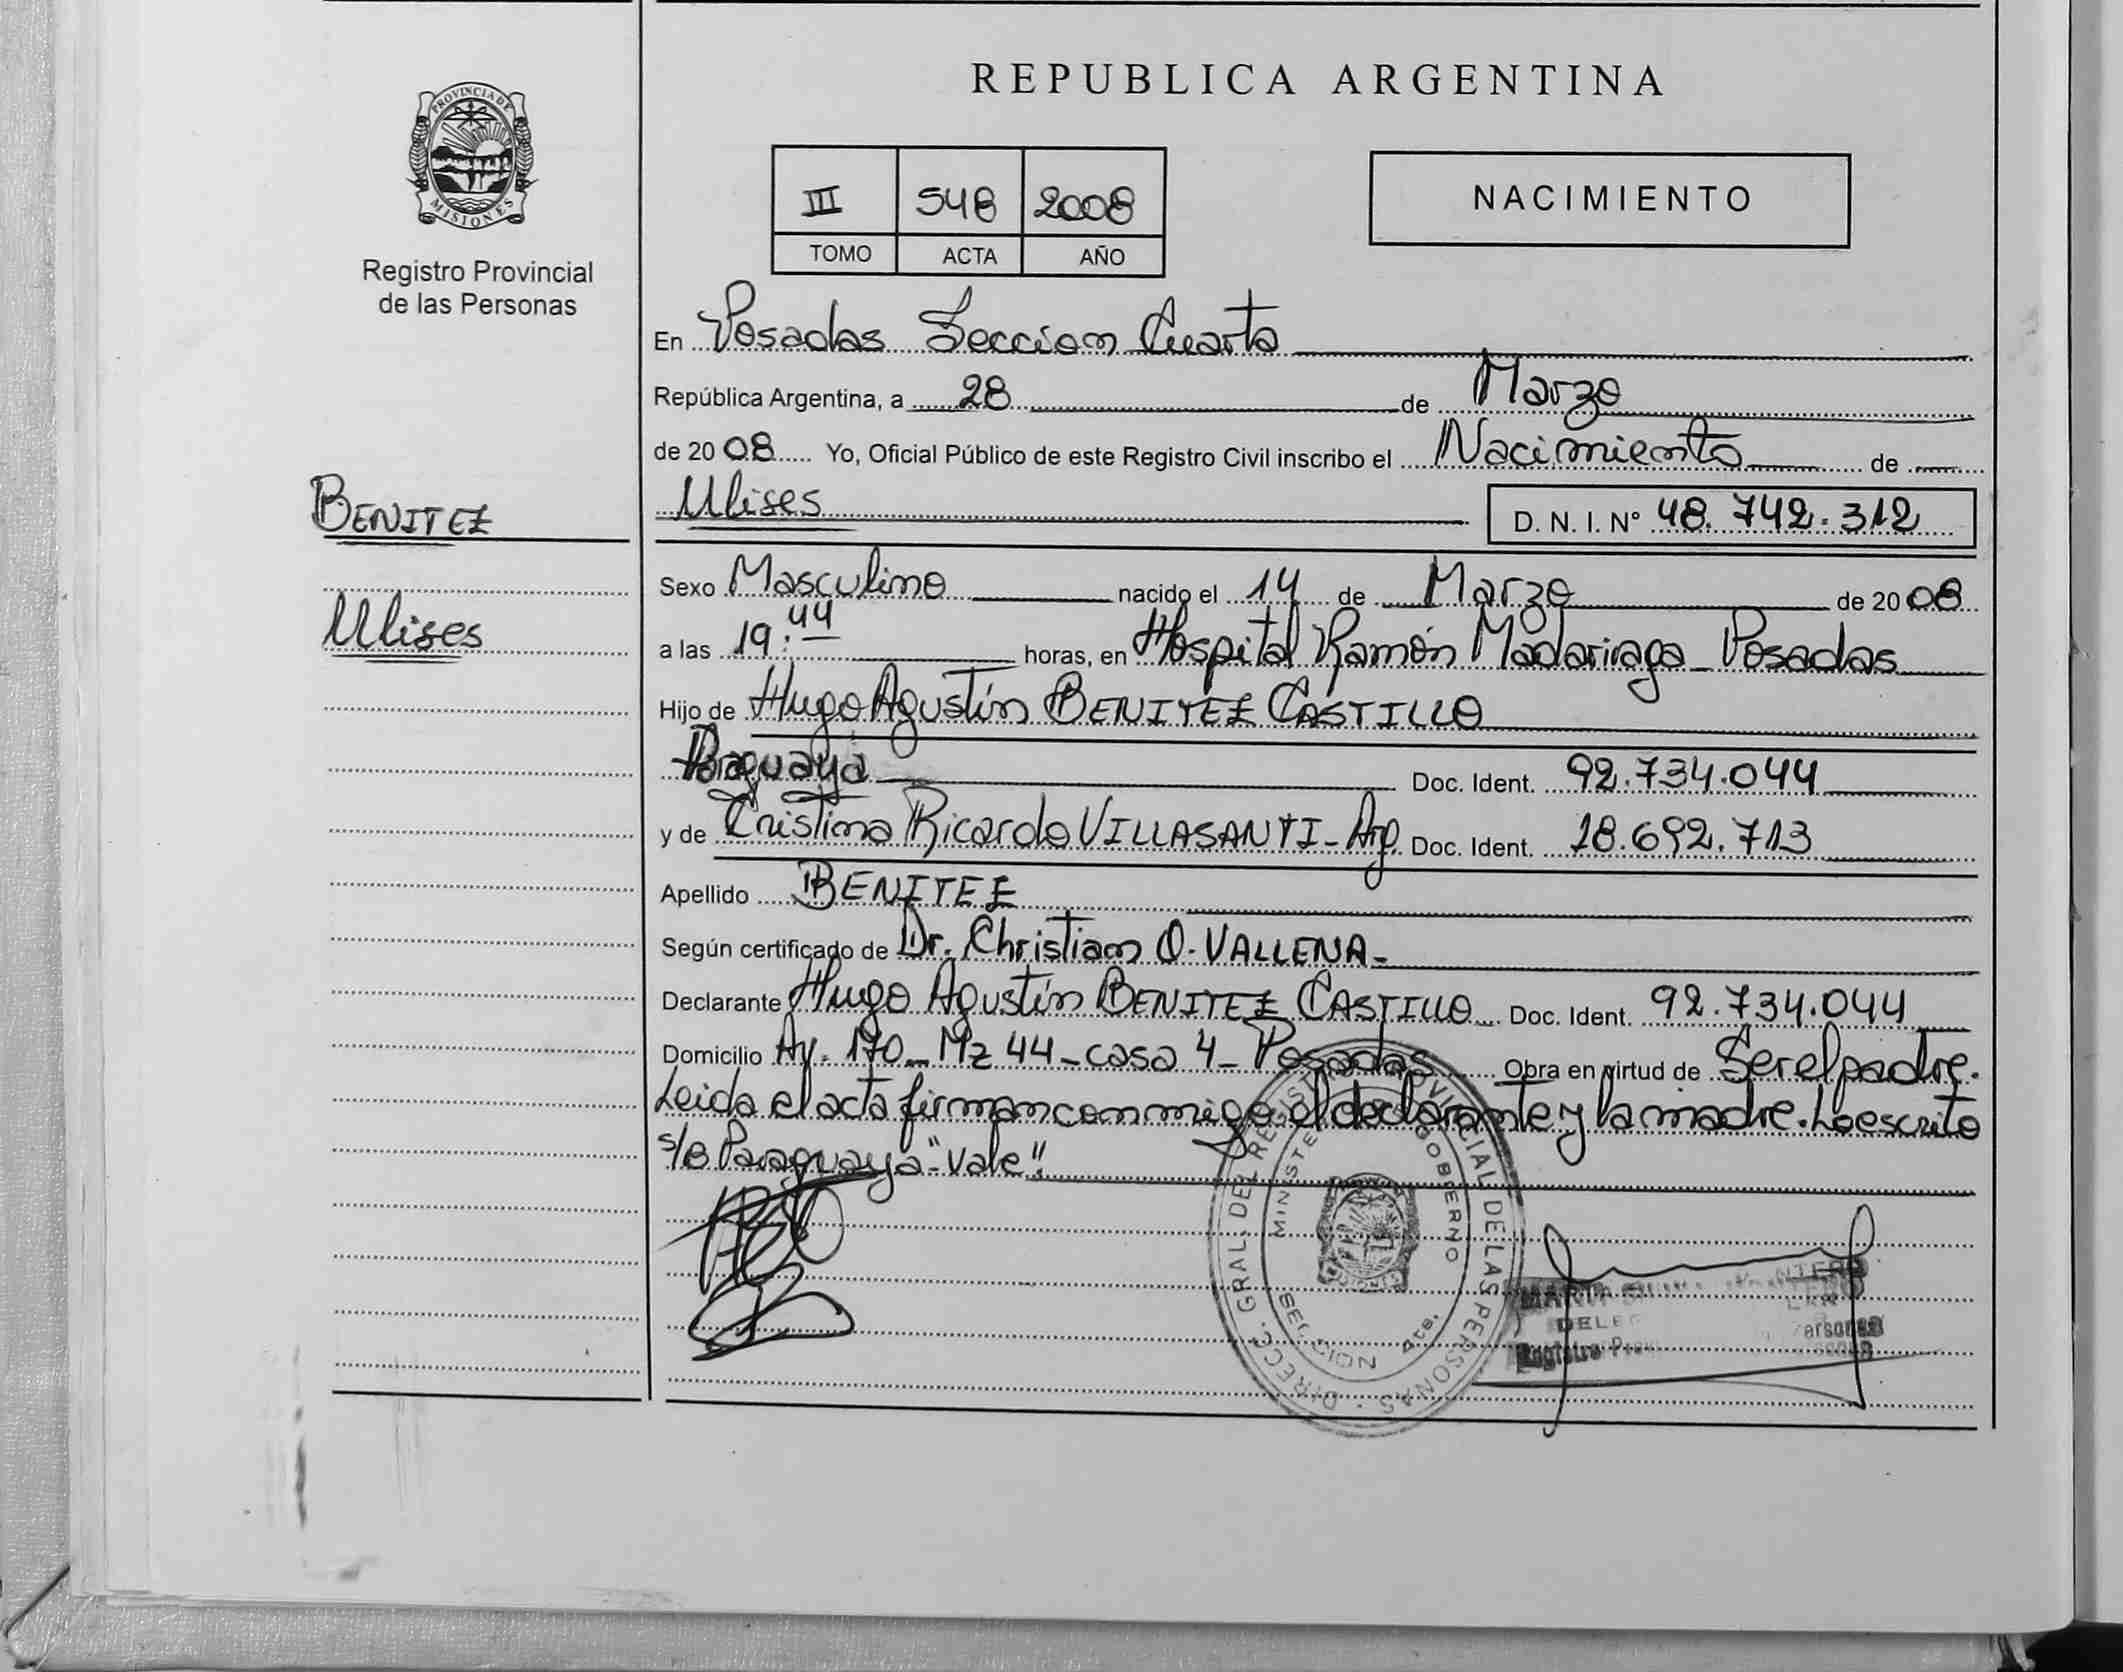 PROVINCIA DE
MISIONES
Registro Provincial
de las Personas
BENITEZ
Ulises
REPUBLICA ARGENTINA
III 548 2008
TOMO ACTA AÑO
NACIMIENTO
En Posadas Seccion Cuarta
República Argentina, a 28 de Marzo
de 20 08 Yo, Oficial Público de este Registro Civil inscribo el Nacimiento de
Ulises D. N. I. N° 48.742.312
Sexo Masculino nacido el 14 de Marzo de 20 08
a las 19:44 horas, en Hospital Ramón Madariaga Posadas
Hijo de Hugo Agustín BENITEZ CASTILLO
Paraguaya Doc. Ident. 92.734.044
y de Cristina Ricarda VILLASANTI - Arg. Doc. Ident. 18.692.713
Apellido BENITEZ
Según certificado de Dr. Christian O. VALLENA -
Declarante Hugo Agustín BENITEZ CASTILLO Doc. Ident. 92.734.044
Domicilio Av. 170 - Mz 44 - casa 4 - Posadas Obra en virtud de Ser el padre.
Leida el acta firman conmigo el declarante y la madre. Lo escrito
s/b Paraguaya "Vale".
DIRECC. GRAL. DEL REGISTRO PROVINCIAL DE LAS PERSONAS
GOBIERNO